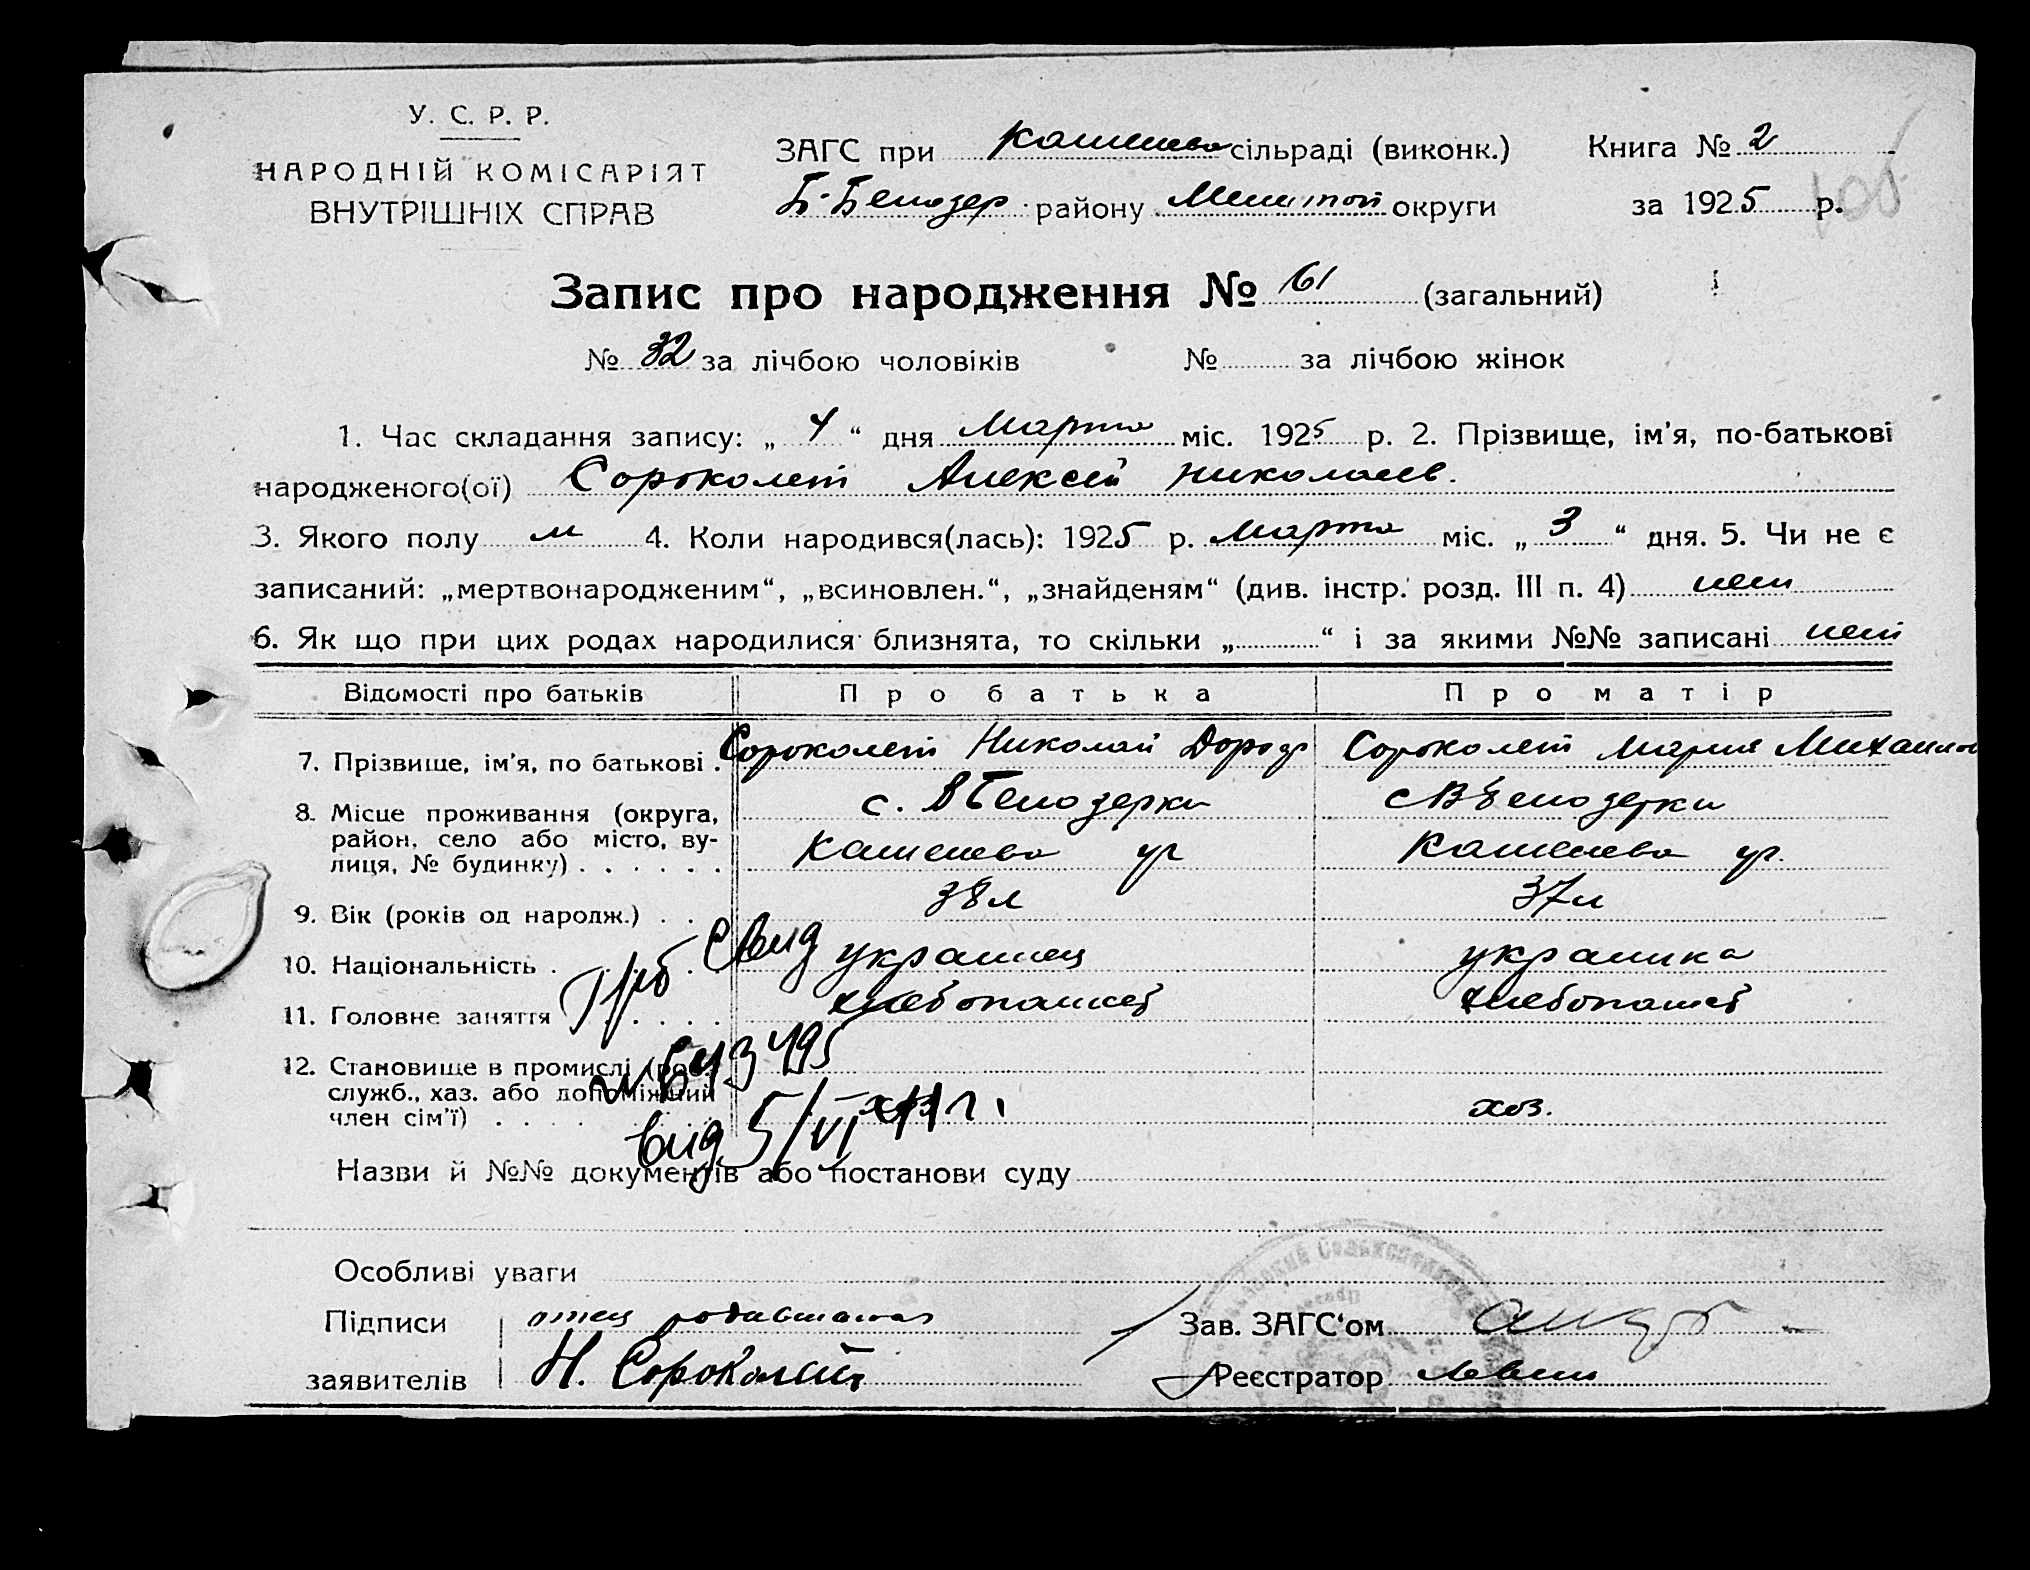 У. С. Р. Р.
НАРОДНІЙ КОМІСАРІЯТ
ВНУТРІШНІХ СПРАВ
ЗАГС при Кашеева сільраді (виконк.) Книга № 2
Б-Белозер району Мелитоп округи за 1925 р.
Запис про народження № 61 (загальний)
№ 32 за лічбою чоловіків № за лічбою жінок
1. Час складання запису: „ 4 “ дня Марта міс. 1925 р. 2. Прізвище, ім'я, по-батькові
народженого(ої) Сороколет Алексей Николаев.
3. Якого полу м 4. Коли народився(лась): 1925 р. Марта міс. „ 3 “ дня. 5. Чи не є
записаний: „мертвонародженим“, „всиновлен.“, „знайденям“ (див. інстр. розд. III п. 4) нет
6. Як що при цих родах народилися близнята, то скільки „ “ і за якими №№ записані нет
Відомості про батьків Про батька Про матір
7. Прізвище, ім'я, по батькові . Сороколет Николай Дороф Сороколет Мария Михаилов
8. Місце проживання (округа, с. В Белозерки с В Белозерки
район, село або місто, ву-
лиця, № будинку) . . . . . . Кашеева ул Кашеева ул.
9. Вік (років од народж.) . . 38 л 37 л
10. Національність . украинец украинка
11. Головне заняття хлебопашест хлебопашест
12. Становище в промислі (роб.,
служб., хаз. або допоміжний
член сім'ї) . . . . хоз.
свид
493495
вид 5/VI 41 г.
Назви й №№ документів або постанови суду
Особливі уваги
Підписи отец родившагося Зав. ЗАГС‘ом
заявителів Н. Сороколет Реєстратор